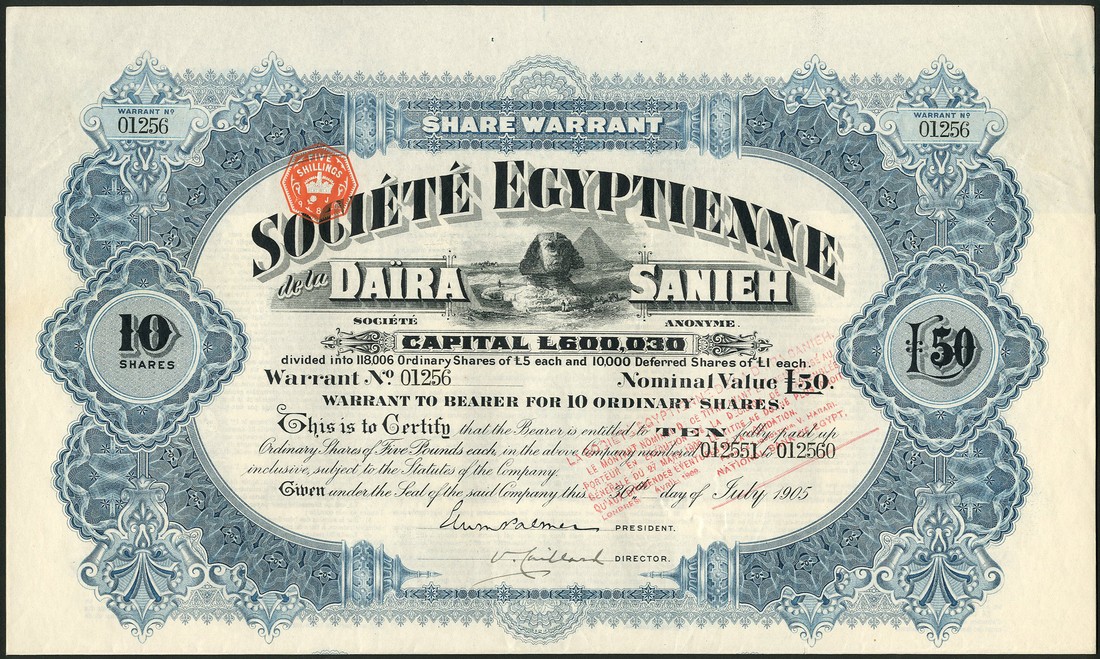 SHARE WARRANT
WARRANT Nº
01256
WARRANT Nº
01256
FIVE
SHILLINGS
SOCIÉTÉ EGYPTIENNE
de la DAÏRA SANIEH
SOCIÉTÉ ANONYME.
CAPITAL £600,030
divided into 118,006 Ordinary Shares of £5 each and 10,000 Deferred Shares of £1 each.
10
SHARES
£50
Warrant Nº 01256 Nominal Value £50.
WARRANT TO BEARER FOR 10 ORDINARY SHARES.
This is to Certify that the Bearer is entitled to TEN fully paid up
Ordinary Shares of Five Pounds each, in the above Company numbered 012551 to 012560
inclusive, subject to the Statutes of the Company.
Given under the Seal of the said Company this day of July 1905
PRESIDENT.
DIRECTOR.
LE MONTANT NOMINAL DE CE TITRE
PORTEUR EN
GÉNÉRALE DU 27 MA
LONDRES
NATIONAL EGYPT.